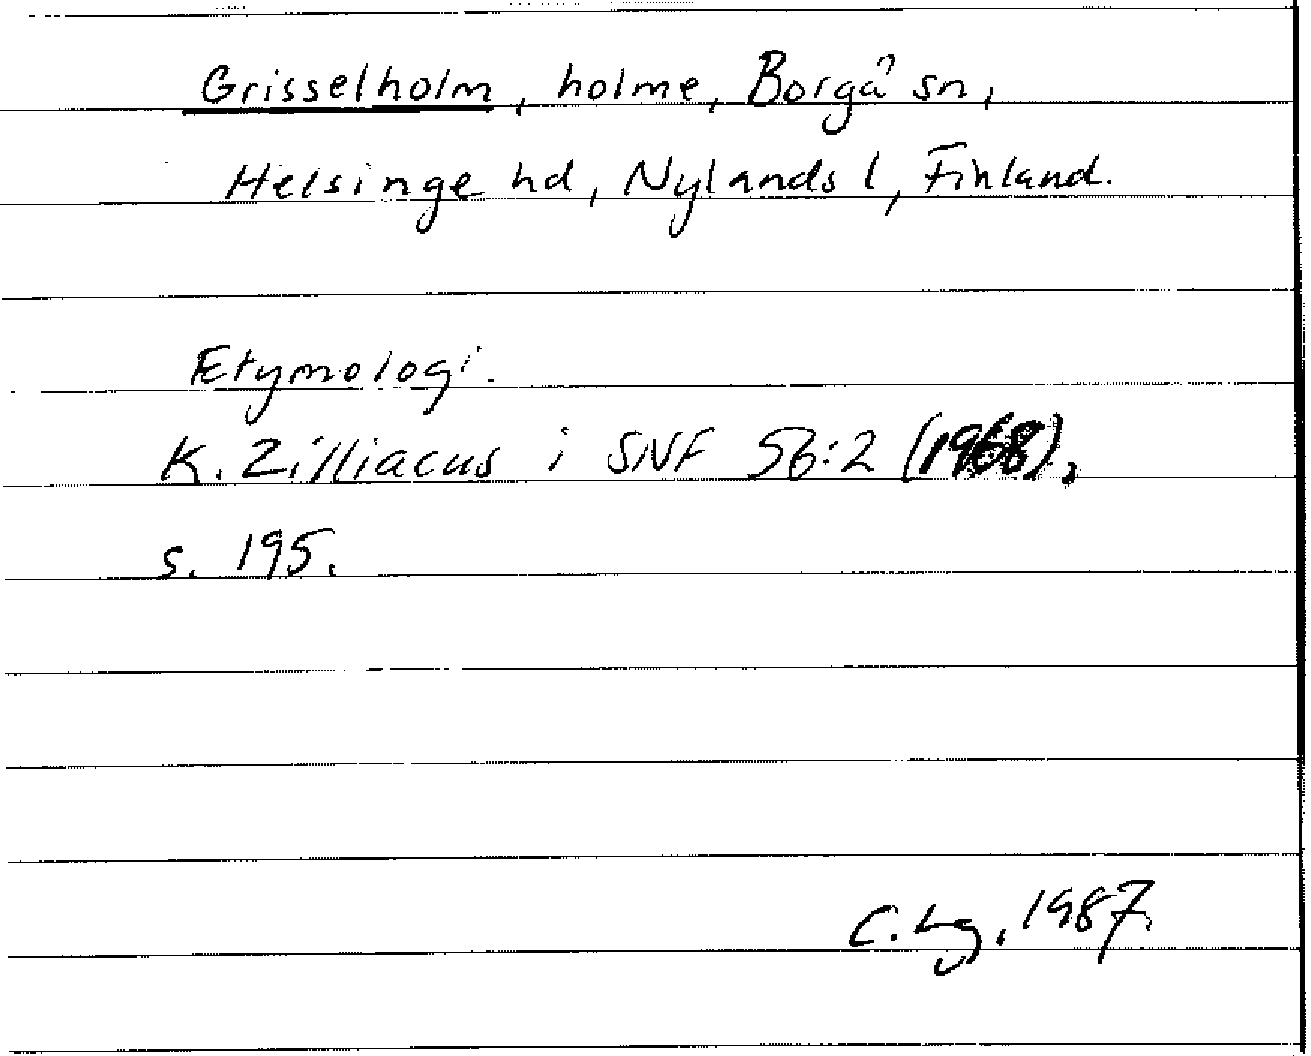 Grisselholm, holme, Borgå sn,
Helsinge hd, Nylands l, Finland.
Etymologi.
K. Zilliacus i SNF 56:2 (1968),
s. 195.
C. Lg, 1987.